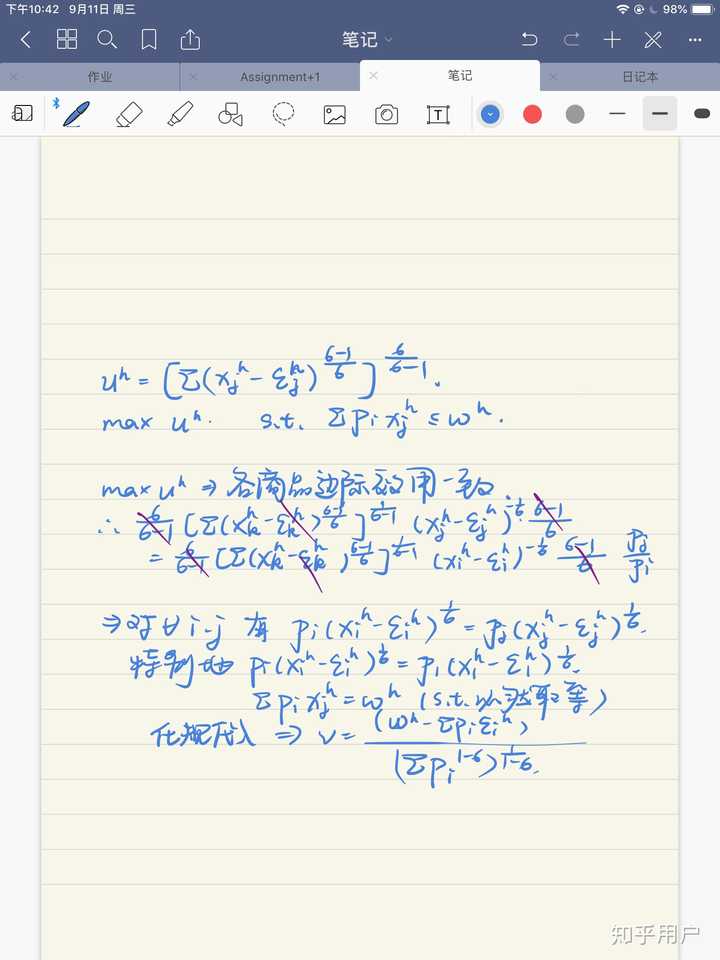 下午10:42 9月11日 周三 98%
笔记
作业 Assignment+1 笔记 日记本
T
u^h = [Σ(x_j^h - ε_j^h)^{\frac{6-1}{6}}]^{\frac{6}{6-1}}.
max u^h. s.t. Σ p_i x_j^h ≤ w^h.
max u^h ⇒ 各商品边际效用一致
∴ \frac{6}{6-1} [Σ(x_k^h - ε_k^h)^{\frac{6-1}{6}}]^{\frac{1}{6-1}} (x_j^h - ε_j^h)^{-\frac{1}{6}} · \frac{6-1}{6}
= \frac{6}{6-1} [Σ(x_k^h - ε_k^h)^{\frac{6-1}{6}}]^{\frac{1}{6-1}} (x_i^h - ε_i^h)^{-\frac{1}{6}} \frac{6-1}{6} \frac{p_j}{p_i}
⇒ 对∀ i.j 有 p_i(x_i^h - ε_i^h)^{\frac{1}{6}} = p_j(x_j^h - ε_j^h)^{\frac{1}{6}}.
特别地 p_i(x_i^h - ε_i^h)^{\frac{1}{6}} = p_1(x_1^h - ε_1^h)^{\frac{1}{6}}.
Σ p_i x_j^h = w^h (s.t. 必然取等)
代入 ⇒ v = \frac{(w^h - Σ p_i ε_i^h)}{(Σ p_i^{1-6})^{\frac{1}{1-6}}}.
知乎用户